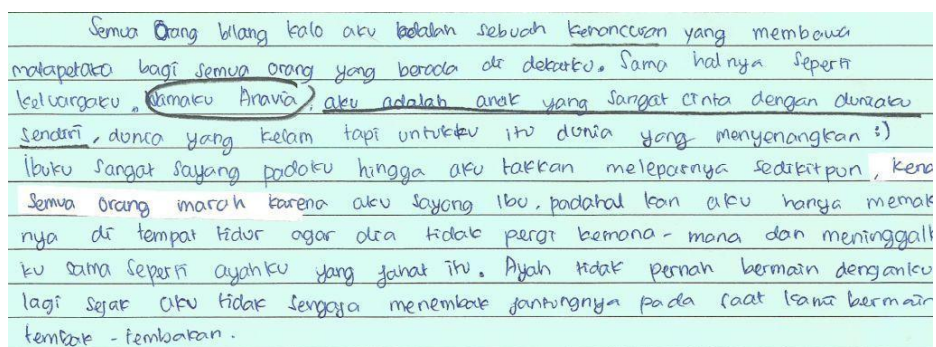 Semua Orang bilang kalo aku adalah sebuah kehancuran yang membawa
malapetaka bagi semua orang yang berada di dekatku. Sama halnya seperti
keluargaku. Namaku Anavia, aku adalah anak yang sangat cinta dengan duniaku
sendiri, dunia yang kelam tapi untukku itu dunia yang menyenangkan :)
Ibuku sangat sayang padaku hingga aku takkan melepasnya sedikitpun, kena
semua orang marah karena aku sayang Ibu. padahal kan aku hanya memak
nya di tempat tidur agar dia tidak pergi kemana-mana dan meninggalk
ku sama seperti ayahku yang jahat itu. Ayah tidak pernah bermain denganku
lagi sejak aku tidak sengaja menembak jantungnya pada saat kami bermain
tembak-tembakan.